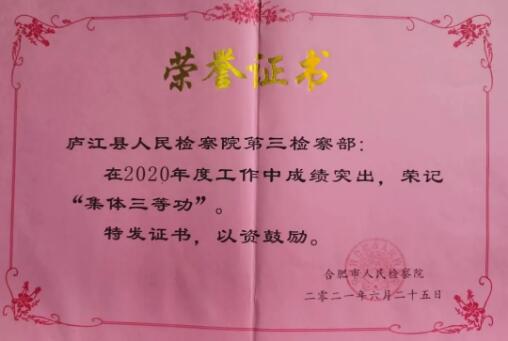 荣誉证书
庐江县人民检察院第三检察部：
在2020年度工作中成绩突出，荣记
“集体三等功”。
特发证书，以资鼓励。
合肥市人民检察院
二零二一年六月二十五日